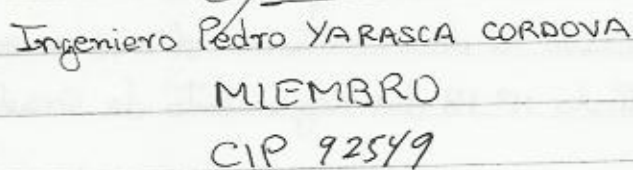 Ingeniero Pedro YARASCA CORDOVA
MIEMBRO
CIP 92549